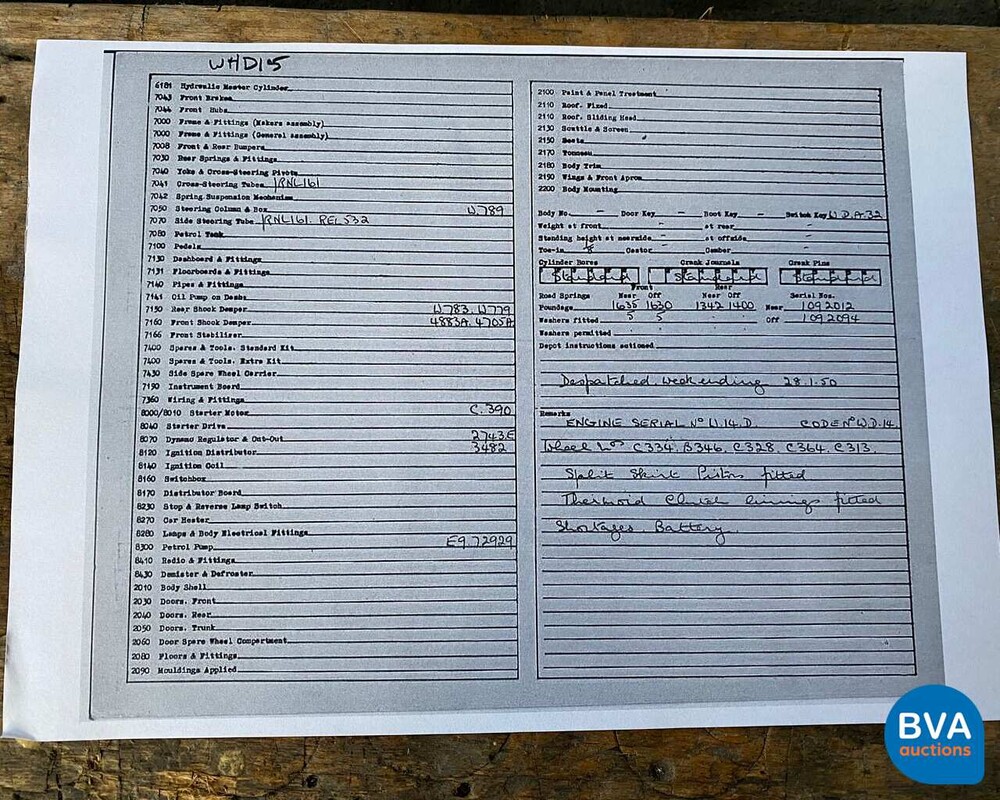 WHD15
6181 Hydraulic Master Cylinder
7043 Front Brakes
7044 Front Hubs
7000 Frame & Fittings (Makers assembly)
7000 Frame & Fittings (General assembly)
7008 Front & Rear Bumpers
7030 Rear Springs & Fittings
7040 Yoke & Cross-Steering Pivots
7041 Cross-Steering Tubes RNL161
7042 Spring Suspension Mechanism
7050 Steering Column & Box W.789
7070 Side Steering Tube RNL161. REL532
7080 Petrol Tank
7100 Pedals
7130 Dashboard & Fittings
7131 Floorboards & Fittings
7140 Pipes & Fittings
7141 Oil Pump on Dash
7150 Rear Shock Damper W.783. W.779
7160 Front Shock Damper 4883A. 4705A
7166 Front Stabiliser
7400 Spares & Tools. Standard Kit
7400 Spares & Tools. Extra Kit
7430 Side Spare Wheel Carrier
7190 Instrument Board
7360 Wiring & Fittings
8000/8010 Starter Motor C.390
8040 Starter Drive
8070 Dynamo Regulator & Cut-Out 2743E
8120 Ignition Distributor 3482
8140 Ignition Coil
8160 Switchbox
8170 Distributor Board
8230 Stop & Reverse Lamp Switch
8270 Car Heater
8280 Lamps & Body Electrical Fittings
8300 Petrol Pump E9.72929
8410 Radio & Fittings
8430 Demister & Defroster
2010 Body Shell
2030 Doors. Front
2040 Doors. Rear
2050 Doors. Trunk
2060 Door Spare Wheel Compartment
2080 Floors & Fittings
2090 Mouldings Applied
2100 Paint & Panel Treatment
2110 Roof. Fixed
2110 Roof. Sliding Head
2130 Scuttle & Screen
2150 Seats
2170 Tonneau
2180 Body Trim
2190 Wings & Front Apron
2200 Body Mounting
Body No. - Door Key - Boot Key - Switch Key W.D.A.32
Weight at front - at rear -
Standing height at nearside - at offside -
Toe-in Castor - Camber -
Cylinder Bores Crank Journals Crank Pins
Standard Standard Standard
Front Rear
Road Springs Near Off Near Off Serial Nos.
Poundage 1635 1630 1342 1400 Near 109 2012
Washers fitted 5 5 Off 109 2094
Washers permitted
Depot instructions actioned
Despatched week ending 28.1.50
Remarks
ENGINE SERIAL Nº W.14.D. CODE Nº W.D.14.
Wheel Nos C334. B346. C328. C364. C313.
Split Skirt Pistons fitted
Thermoid Clutch linings fitted
Shortages. Battery.
BVA
auctions